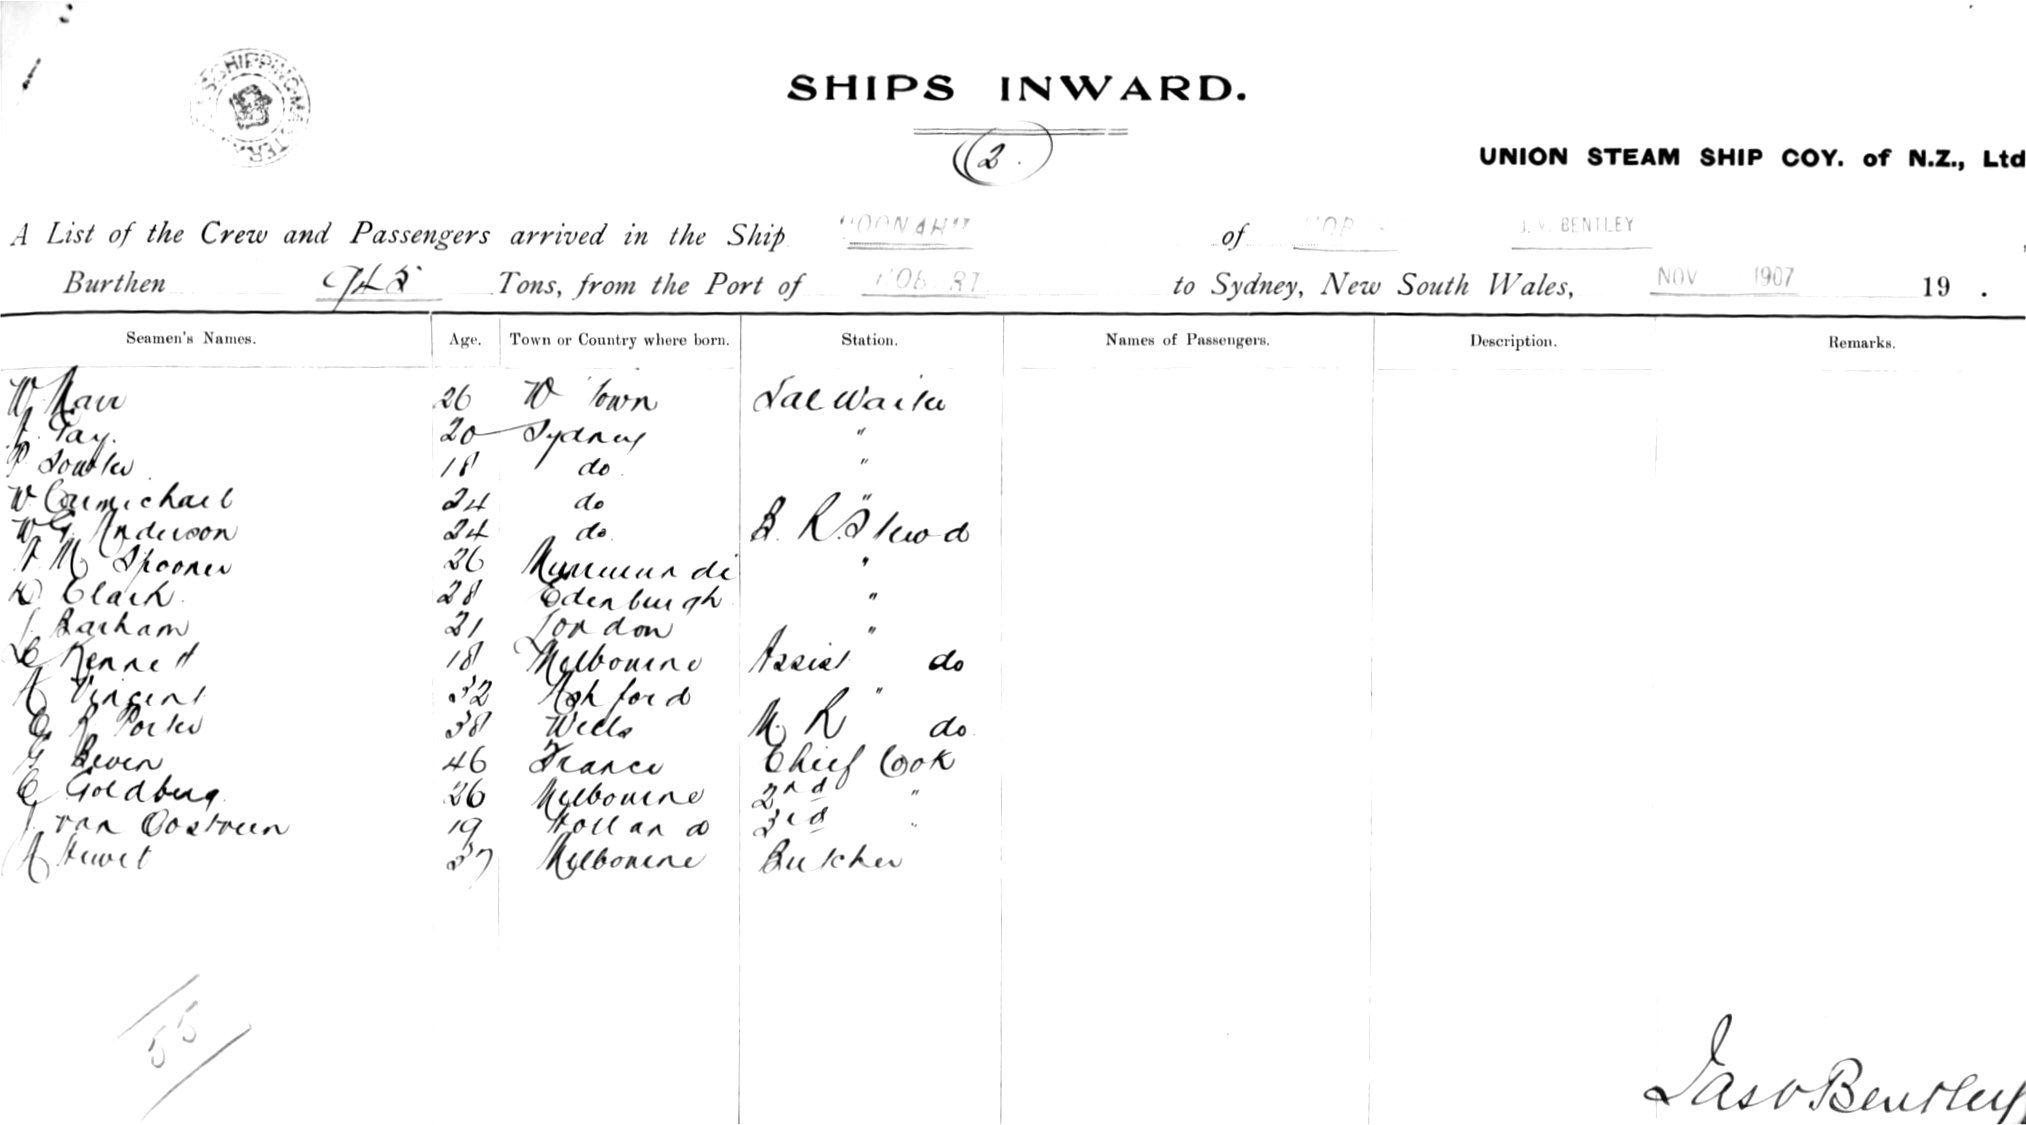 SHIPPING MASTER
SHIPS INWARD.
(2.)
UNION STEAM SHIP COY. of N.Z., Ltd
A List of the Crew and Passengers arrived in the Ship of J. V. BENTLEY
Burthen Tons, from the Port of to Sydney, New South Wales, NOV 1907 19 .
Seamen's Names. Age. Town or Country where born. Station. Names of Passengers. Description. Remarks.
26 W Town Sal Waiter
20 Sydney "
18 do "
W Carmichael 24 do "
W G Anderson 24 do. B. R. Stewd
M Spooner 26 "
D Clark 28 Edenburgh "
Barham 21 London "
C Kennett 18 Melbourne Assist do
A Vincent 32 Ashford "
R Porter 38 Wells do
G Beven 46 France Chief Cook
C Goldberg 26 Melbourne 2nd "
J van 19 Holland 3rd "
A 37 Melbourne Butcher
55
Jas V Bentley